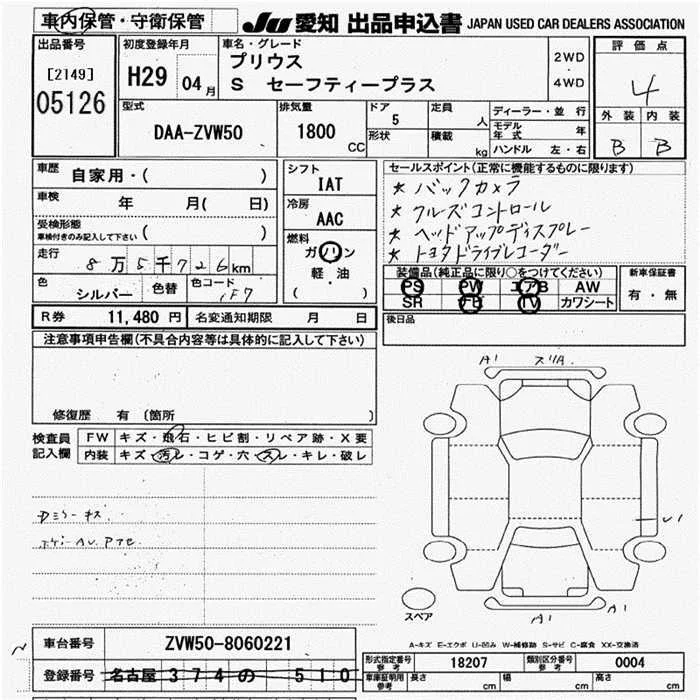 車内保管・守衛保管
JU 愛知 出品申込書 JAPAN USED CAR DEALERS ASSOCIATION
出品番号
[2149]
05126
初度登録年月
H29 04月
車名・グレード
プリウス
S セーフティープラス
2WD
・
4WD
評価点
4
外装 内装
B B
型式
DAA-ZVW50
排気量
1800
CC
ドア
5
定員
人
形状
積載
kg
ディーラー・並行
モデル年式 年
ハンドル 左・右
車歴
自家用・( )
車検
年 月( 日)
受検形態
車検付きのみ記入して下さい ( )
走行
8万5千726km
色
シルバー
色替
色コード
1F7
シフト
IAT
冷房
AAC
燃料
ガソリン
軽・油
( )
セールスポイント(正常に機能するものに限ります)
★ バックカメラ
★ クルーズコントロール
★ ヘッドアップディスプレー
★ トヨタドライブレコーダー
装備品(純正品に限り○をつけてください)
PS PW エアB AW
SR TV カワシート
新車保証書
有・無
後日品
R券 11,480 円 名変通知期限 月 日
注意事項申告欄(不具合内容等は具体的に記入して下さい)
修復歴 有 〔箇所 〕
検査員
記入欄
FW キズ・飛石・ヒビ割・リペア跡・X要
内装 キズ・汚レ・コゲ・穴・スレ・キレ・破レ
Dミラーキズ
A1 スリA
U1
A1 A1
スペア
A-キズ E-エクボ U-凹み W-補修跡 S-サビ C-腐食 XX-交換済
車台番号 ZVW50-8060221
登録番号 名古屋 374 の 510
型式指定番号
参考
18207
類別区分番号
参考
0004
車庫証明用
参考
長さ cm 幅 cm 高さ cm